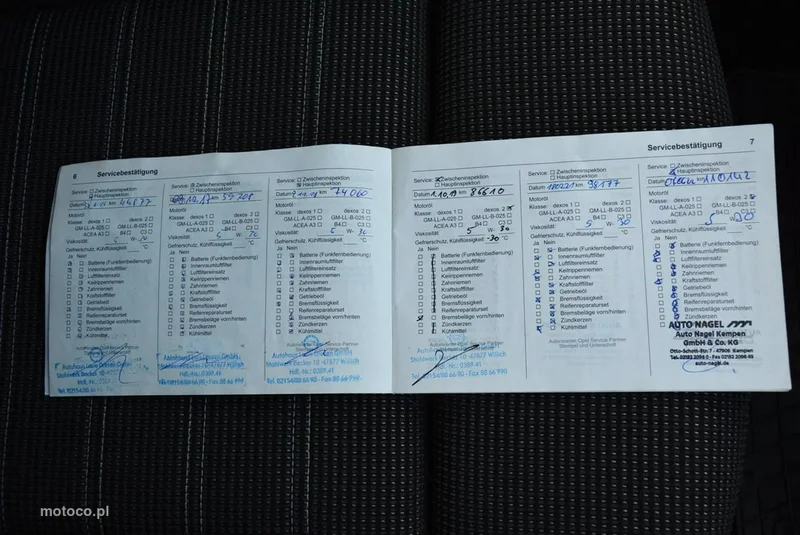 6 Servicebestätigung
Service: Zwischeninspektion
Hauptinspektion
Datum km 44877
Motoröl
Klasse: dexos 1 dexos 2
GM-LL-A-025 GM-LL-B-025
ACEA A3 B4 C3
Viskosität: 5 W-
Gefrierschutz, Kühlflüssigkeit °C
Ja Nein
Batterie (Funkfernbedienung)
Innenraumluftfilter
Luftfiltereinsatz
Keilrippenriemen
Zahnriemen
Kraftstofffilter
Getriebeöl
Bremsflüssigkeit
Reifenreparaturset
Bremsbeläge vorn/hinten
Zündkerzen
Kühlmittel
Zwischeninspektion
Hauptinspektion
km
Motoröl
Klasse: dexos 1 dexos 2
GM-LL-A-025 GM-LL-B-025
ACEA A3 B4 C3
Viskosität: 5 W-30
Gefrierschutz, Kühlflüssigkeit °C
Ja Nein
Batterie (Funkfernbedienung)
Innenraumluftfilter
Luftfiltereinsatz
Keilrippenriemen
Zahnriemen
Kraftstofffilter
Getriebeöl
Bremsflüssigkeit
Reifenreparaturset
Bremsbeläge vorn/hinten
Zündkerzen
Kühlmittel
Service: Zwischeninspektion
Hauptinspektion
Datum km 74060
Motoröl
Klasse: dexos 1 dexos 2
GM-LL-A-025 GM-LL-B-025
ACEA A3 B4 C3
Viskosität: 5 W-30
Gefrierschutz, Kühlflüssigkeit °C
Ja Nein
Batterie (Funkfernbedienung)
Innenraumluftfilter
Luftfiltereinsatz
Keilrippenriemen
Zahnriemen
Kraftstofffilter
Getriebeöl
Bremsflüssigkeit
Reifenreparaturset
Bremsbeläge vorn/hinten
Zündkerzen
Kühlmittel
47877 Willich
Hdl.-Nr.: 0389.41
Tel. 02154/88 66 90 - Fax 88 66 999
Servicebestätigung 7
Service: Zwischeninspektion
Hauptinspektion
Datum 1.10.19 km 86610
Motoröl
Klasse: dexos 1 dexos 2
GM-LL-A-025 GM-LL-B-025
ACEA A3 B4 C3
Viskosität: 5 W-30
Gefrierschutz, Kühlflüssigkeit -30 °C
Ja Nein
Batterie (Funkfernbedienung)
Innenraumluftfilter
Luftfiltereinsatz
Keilrippenriemen
Zahnriemen
Kraftstofffilter
Getriebeöl
Bremsflüssigkeit
Reifenreparaturset
Bremsbeläge vorn/hinten
Zündkerzen
Kühlmittel
47877 Willich
Hdl.-Nr.: 0389.41
Tel. 02154/88 66 90 - Fax 88 66 999
Service: Zwischeninspektion
Hauptinspektion
Datum km 98177
Motoröl
Klasse: dexos 1 dexos 2
GM-LL-A-025 GM-LL-B-025
ACEA A3 B4 C3
Viskosität: 5 W-30
Gefrierschutz, Kühlflüssigkeit °C
Ja Nein
Batterie (Funkfernbedienung)
Innenraumluftfilter
Luftfiltereinsatz
Keilrippenriemen
Zahnriemen
Kraftstofffilter
Getriebeöl
Bremsflüssigkeit
Reifenreparaturset
Bremsbeläge vorn/hinten
Zündkerzen
Kühlmittel
Autorisierter Opel Service Partner
Stempel und Unterschrift
Service: Zwischeninspektion
Hauptinspektion
Datum km 110142
Motoröl
Klasse: dexos 1 dexos 2
GM-LL-A-025 GM-LL-B-025
ACEA A3 B4 C3
Viskosität: 5 W-30
Gefrierschutz, Kühlflüssigkeit °C
Ja Nein
Batterie (Funkfernbedienung)
Innenraumluftfilter
Luftfiltereinsatz
Keilrippenriemen
Zahnriemen
Kraftstofffilter
Getriebeöl
Bremsflüssigkeit
Reifenreparaturset
Bremsbeläge vorn/hinten
Zündkerzen
Kühlmittel
AUTO NAGEL
Auto Nagel Kempen
GmbH & Co. KG
Otto-Schott-Str. 7 - 47906 Kempen
auto-nagel.de
motoco.pl